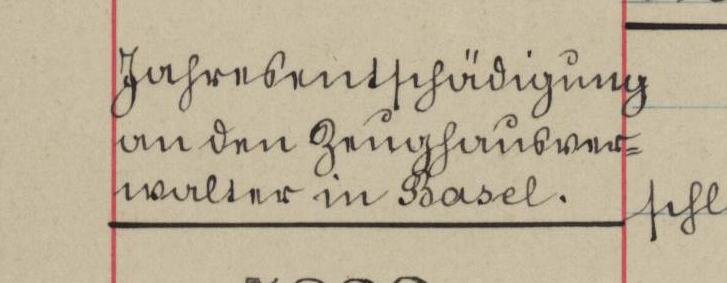 Jahresentschädigung
an den Zeughausver=
walter in Basel.
schl